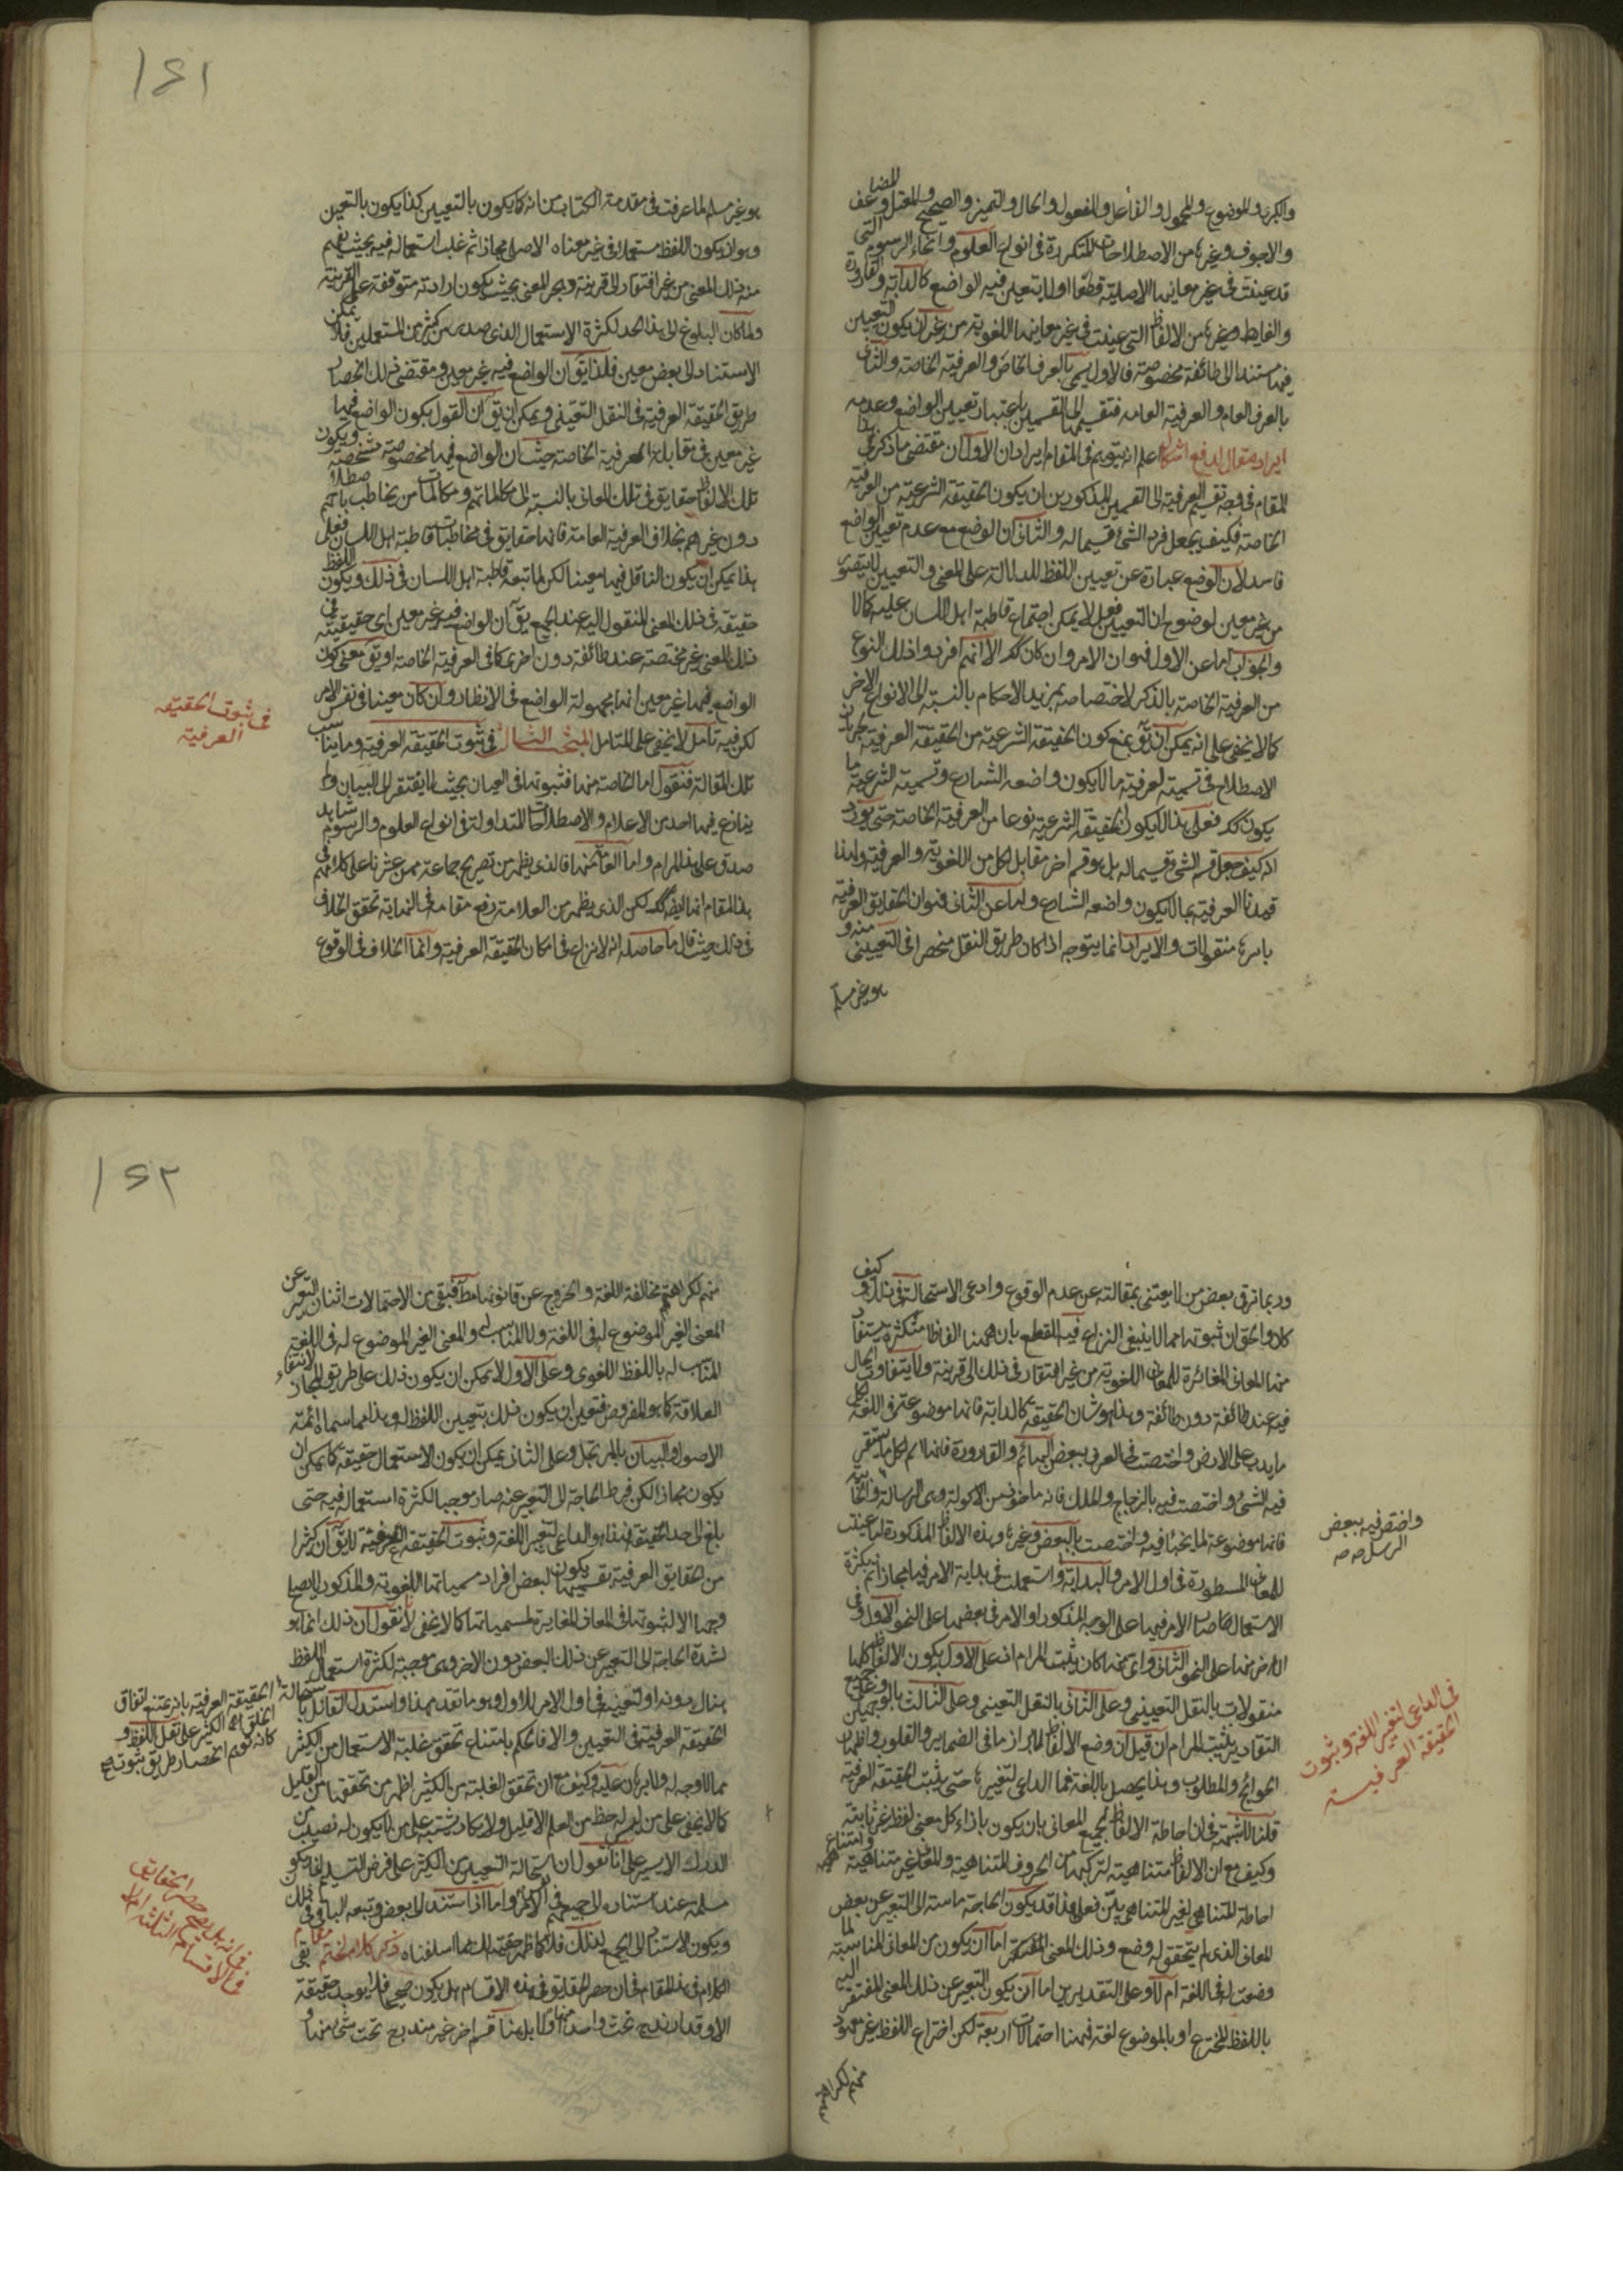 والكبرى والموضوع والمحمول والفاعل والمفعول والحال والتميز والصحيح والمعتل والمضاعف
والاجوف وغيرها من الاصطلاحات المتكررة فى انواع العلوم وانحاء الرسوم التى
قد عينت فى غير معانيها الاصلية قطعا اولا يتعين فيه الواضع كالدابة والقارورة
والغايط وغيرها من الالفاظ التى عينت فى غير معانيها اللغوية من غير ان يكون التعيين
فيها مستندا الى طائفة مخصوصة فالاول يسمى بالعرف الخاص والعرفية الخاصة والثانى
بالعرف العام والعرفية العامه فتقسيمها الى القسمين باعتبار تعيين الواضع وعدمه
ايراد مقال لدفع اشكال اعلم انه يتوهم فى المقام ايرادان الاول ان مقتضى ما ذكر فى هذا
المقام فى وجه تقسيم العرفية الى القسمين المذكورين ان يكون الحقيقة الشرعية من العرفية
الخاصة فكيف يجعل فرد الشئ قسيما له والثانى ان الوضع مع عدم تعيين الواضع
فاسد لان الوضع عبارة عن تعيين اللفظ للدلالة على المعنى والتعيين لا يتصور
من غير معين لوضوح ان التعيين فعل لا يمكن اجتماع قاطبة اهل اللسان عليه كالا
والجواب اما عن الاول فهو ان الامر وان كان كك الا انهم افردوا ذلك النوع
من العرفية الخاصة بالذكر لاختصاصه بمزيد الاحكام بالنسبة الى الانواع الاخر
كما لا يخفى على انه يمكن ان يق بمنع كون الحقيقة الشرعية من الحقيقة العرفية لجريان
الاصطلاح فى تسمية العرفية بما لا يكون واضعه الشارع وتسمية الشرعية ما
يكون كك فعلى هذا لا يكون الحقيقة الشرعية نوعا من العرفية الخاصة حتى يورد
انه كيف جعل قسم الشئ قسيما له بل هو قسم اخر مقابل لكل من اللغوية والعرفية ولهذا
قيدنا العرفية بما لا يكون واضعه الشارع واما عن الثانى فهو ان الحقايق العرفية
باسرها منقولات والايراد انما يتوجه اذا كان طريق النقل منحصرا فى التعيينى منه و
هو غير مسلم
١٤١
هو غير مسلم لما عرفت فى مقدمة الكتاب من انه كما يكون بالتعيين كذا يكون بالتعين
وهو ان يكون اللفظ مستعملا فى غير معناه الاصلى مجازا ثم غلب استعماله فيه بحيث يفهم
منه ذلك المعنى من غير افتقار الى قرينة ويهجر المعنى بحيث يكون ارادته متوقفة على القرينة
ولما كان البلوغ الى هذا الحد لكثرة الاستعمال الذى صدر من كثير من المستعملين فلا يمكن
الاستناد الى بعض معين فلذا يق ان الواضع فيه غير معين ومقتضى ذلك انحصار
طريق الحقيقة العرفية فى النقل التعينى ويمكن ان يق ان القول بكون الواضع فيها
غير معين فى مقابل العرفية الخاصة حيث ان الواضع فيها مخصوصة مشخصة ويكون
تلك الالفاظ حقايق فى تلك المعانى بالنسبة الى مكالماتهم ومكالمات من يخاطب باصطلاحهم
دون غيرهم بخلاف العرفية العامة فانها حقايق فى مخاطبات قاطبة اهل اللسان فعلى
هذا يمكن ان يكون الناقل فيها معينا لكن لما تبعه قاطبة اهل اللسان فى ذلك ويكون اللفظ
حقيقة فى ذلك المعنى المنقول اليه عند الجميع يق ان الواضع فيه غير معين اى حقيقيته فى
ذلك المعنى غير مختصة عند طائفة دون اخرى كما فى العرفية الخاصة او يق معنى كون
الواضع فيها غير معين انها مجهولة الواضع فى الانظار وان كان معينا فى نفس الامر
لكن فيه تامل لا يخفى على المتامل المبحث الثالث فى ثبوت الحقيقة العرفية وما يناسب
تلك المقالة فنقول اما الخاصة منها فثبوتها فى العيان بحيث لا يفتقر الى البيان ولم
ينازع فيها احد من الاعلام والاصطلاحات المتداولة فى انواع العلوم والرسوم شاهد
صدق على هذا المرام واما العامة منها فالذى يظهر من تصريح جماعة ممن عثرنا على كلامهم فى
هذا المقام انها ايضا كك لكن الذى يظهر من العلامة رفع مقامه فى النهاية تحقق الخلاف
فى ذلك حيث قال ما حاصله انه لا نزاع فى امكان الحقيقة العرفية وانما الخلاف فى الوقوع
فى ثبوت الحقيقه
العرفية
وربما ترقى بعض من لا يعتنى بمقالته عن عدم الوقوع وادعى الاستحالة فى ذلك وكيف
كان والحق ان ثبوتها مما لا ينبغى النزاع فيه للقطع بان ههنا الفاظا متكثرة يستفاد
منها المعانى المغائرة للمعانى اللغوية من غير افتقار فى ذلك الى قرينة ولا يتفاوت الحال
فيه عند طائفة دون طائفة وهذا هو شان الحقيقة كالدابة فانها موضوعة فى اللغة لكل
ما يدب على الارض واختصت فى العرف ببعض البهائم والقارورة فانها اسم لكل ما يستقر
فيه الشئ واختصت فيه بالزجاج والملك فانه ماخوذ من الالوكة وهى الرسالة والخابية
فانها موضوعة لما يخبأ فيه واختصت بالبعض وغيرها وهذه الالفاظ المذكورة اما عينت
للمعانى المسطورة فى اول الامر والبداية واستعملت فى بداية الامر فيها مجازا ثم بكثرة
الاستعمال صار الامر فيها على الوجه المذكور او الامر فى بعضها على النحو الاول وفى
الاخر منها على النحو الثانى واى منها كان يثبت المرام اذ على الاول يكون الالفاظ كلها
منقولات بالنقل التعيينى وعلى الثانى بالنقل التعينى وعلى الثالث بالوجهين وعلى جميع
التقادير يثبت المرام ان قيل ان وضع الالفاظ لابراز ما فى الضماير والقلوب واظهار
الحوائج والمطلوب وهذا يحصل باللغة فما الداعى لتغييرها حتى يثبت الحقيقة العرفية
قلنا لا شبهة فى ان احاطة الالفاظ لجميع المعانى بان يكون بازاء كل معنى لفظ غير ثابتة
وكيف مع ان الالفاظ متناهية لتركبها من الحروف المتناهية والمعانى غير متناهية وامتناع
احاطة المتناهى لغير المتناهى بيّن فعلى هذا قد يكون الحاجة ماسة الى التعبير عن بعض
المعانى الذى لم يتحقق له وضع وذلك المعنى المفتقر اما ان يكون من المعانى المناسبة لما
وضعت له فى اللغة ام لا وعلى التقديرين اما ان يكون التعبير عن ذلك المعنى المفتقر اليه
باللفظ المخترع او بالموضوع لغة فههنا احتمالات اربعة لكن اختراع اللفظ غير معهود
منهم لكراهة
واختص فيه ببعض
الرسل صح صح
فى الداعى لتغير اللغة وثبوت
الحقيقة العرفية
١٤٢
منهم لكراهتهم مخالفة اللغة والخروج عن قانونها فبقى من الاحتمالات اثنان التعبير عن
المعنى الغير الموضوع له فى اللغة ولا المناسب له والمعنى الغير الموضوع له فى اللغة
المناسب له باللفظ اللغوى وعلى الاول لا يمكن ان يكون ذلك على طريق المجاز لانتفاء
العلاقة كما هو المفروض فتعين ان يكون ذلك بتعيين اللفظ له وهذا مما سماه ائمة
الاصول والبيان بالمرتجل وعلى الثانى يمكن ان يكون الاستعمال حقيقة كما يمكن ان
يكون مجازا لكن فرط الحاجة الى التعبير عنه صار موجبا لكثرة استعماله فيه حتى
بلغ الى حد الحقيقة فهذا هو الداعى لتغيير اللغة وثبوت الحقيقة العرفية لا يق ان كثيرا
من الحقايق العرفية يكون لبعض افراد مسمياتها اللغوية والمذكور لا يصلح
وجها الا لثبوتها فى المعانى المغايرة لمسمياتها كما لا يخفى لانا نقول ان ذلك انما هو
لشدة الحاجة الى التعبير عن ذلك البعض دون الاخر وهى موجبة لكثرة استعمال اللفظ
هناك دونه او لتعيينه فى اول الامر للاول وهو ما تقدم هذا واستدل القائل باستحالة
الحقيقة العرفية فى التعيين والا فالحكم بامتناع تحقق غلبة الاستعمال من الكثير
مما لا وجه له ولا برهان عليه وكيف مع ان تحقق الغلبة من الكثير اظهر من تحققها من القليل
كما لا يخفى على من له حظ من العلم الا قليل ولا يكاد يشتبه على من لا يكون له نصيب من
الدرك الا يسير على انا نقول ان استحالة التعيين من الكثير على فرض التسليم انما يكون
مسلمة عند استناده الى جميعهم فى اول الامر واما اذا استند الى بعض وتبعه الباقى فى ذلك
ويكون الاستناد الى الجميع لذلك فلا كما ظهر حقيقة الحال مما اسلفناه ذكر كلام لختم مقام بقى
الكلام فى هذا المقام فى ان حصر الحقايق فى هذه الاقسام هل يكون صحيحا فلا يوجد حقيقة
الا وقد اندرج تحت واحد منها او لا بل هنا قسم اخر غير مندرج تحت شئ منها و
الحقيقة العرفية بانه يمتنع اتفاق
الخلق الكثير على نقل اللفظ و
كانه توهم انحصار طريق ثبوت
فى انه هل يصح حصر الحقايق
فى الاقسام الثلثة ام لا